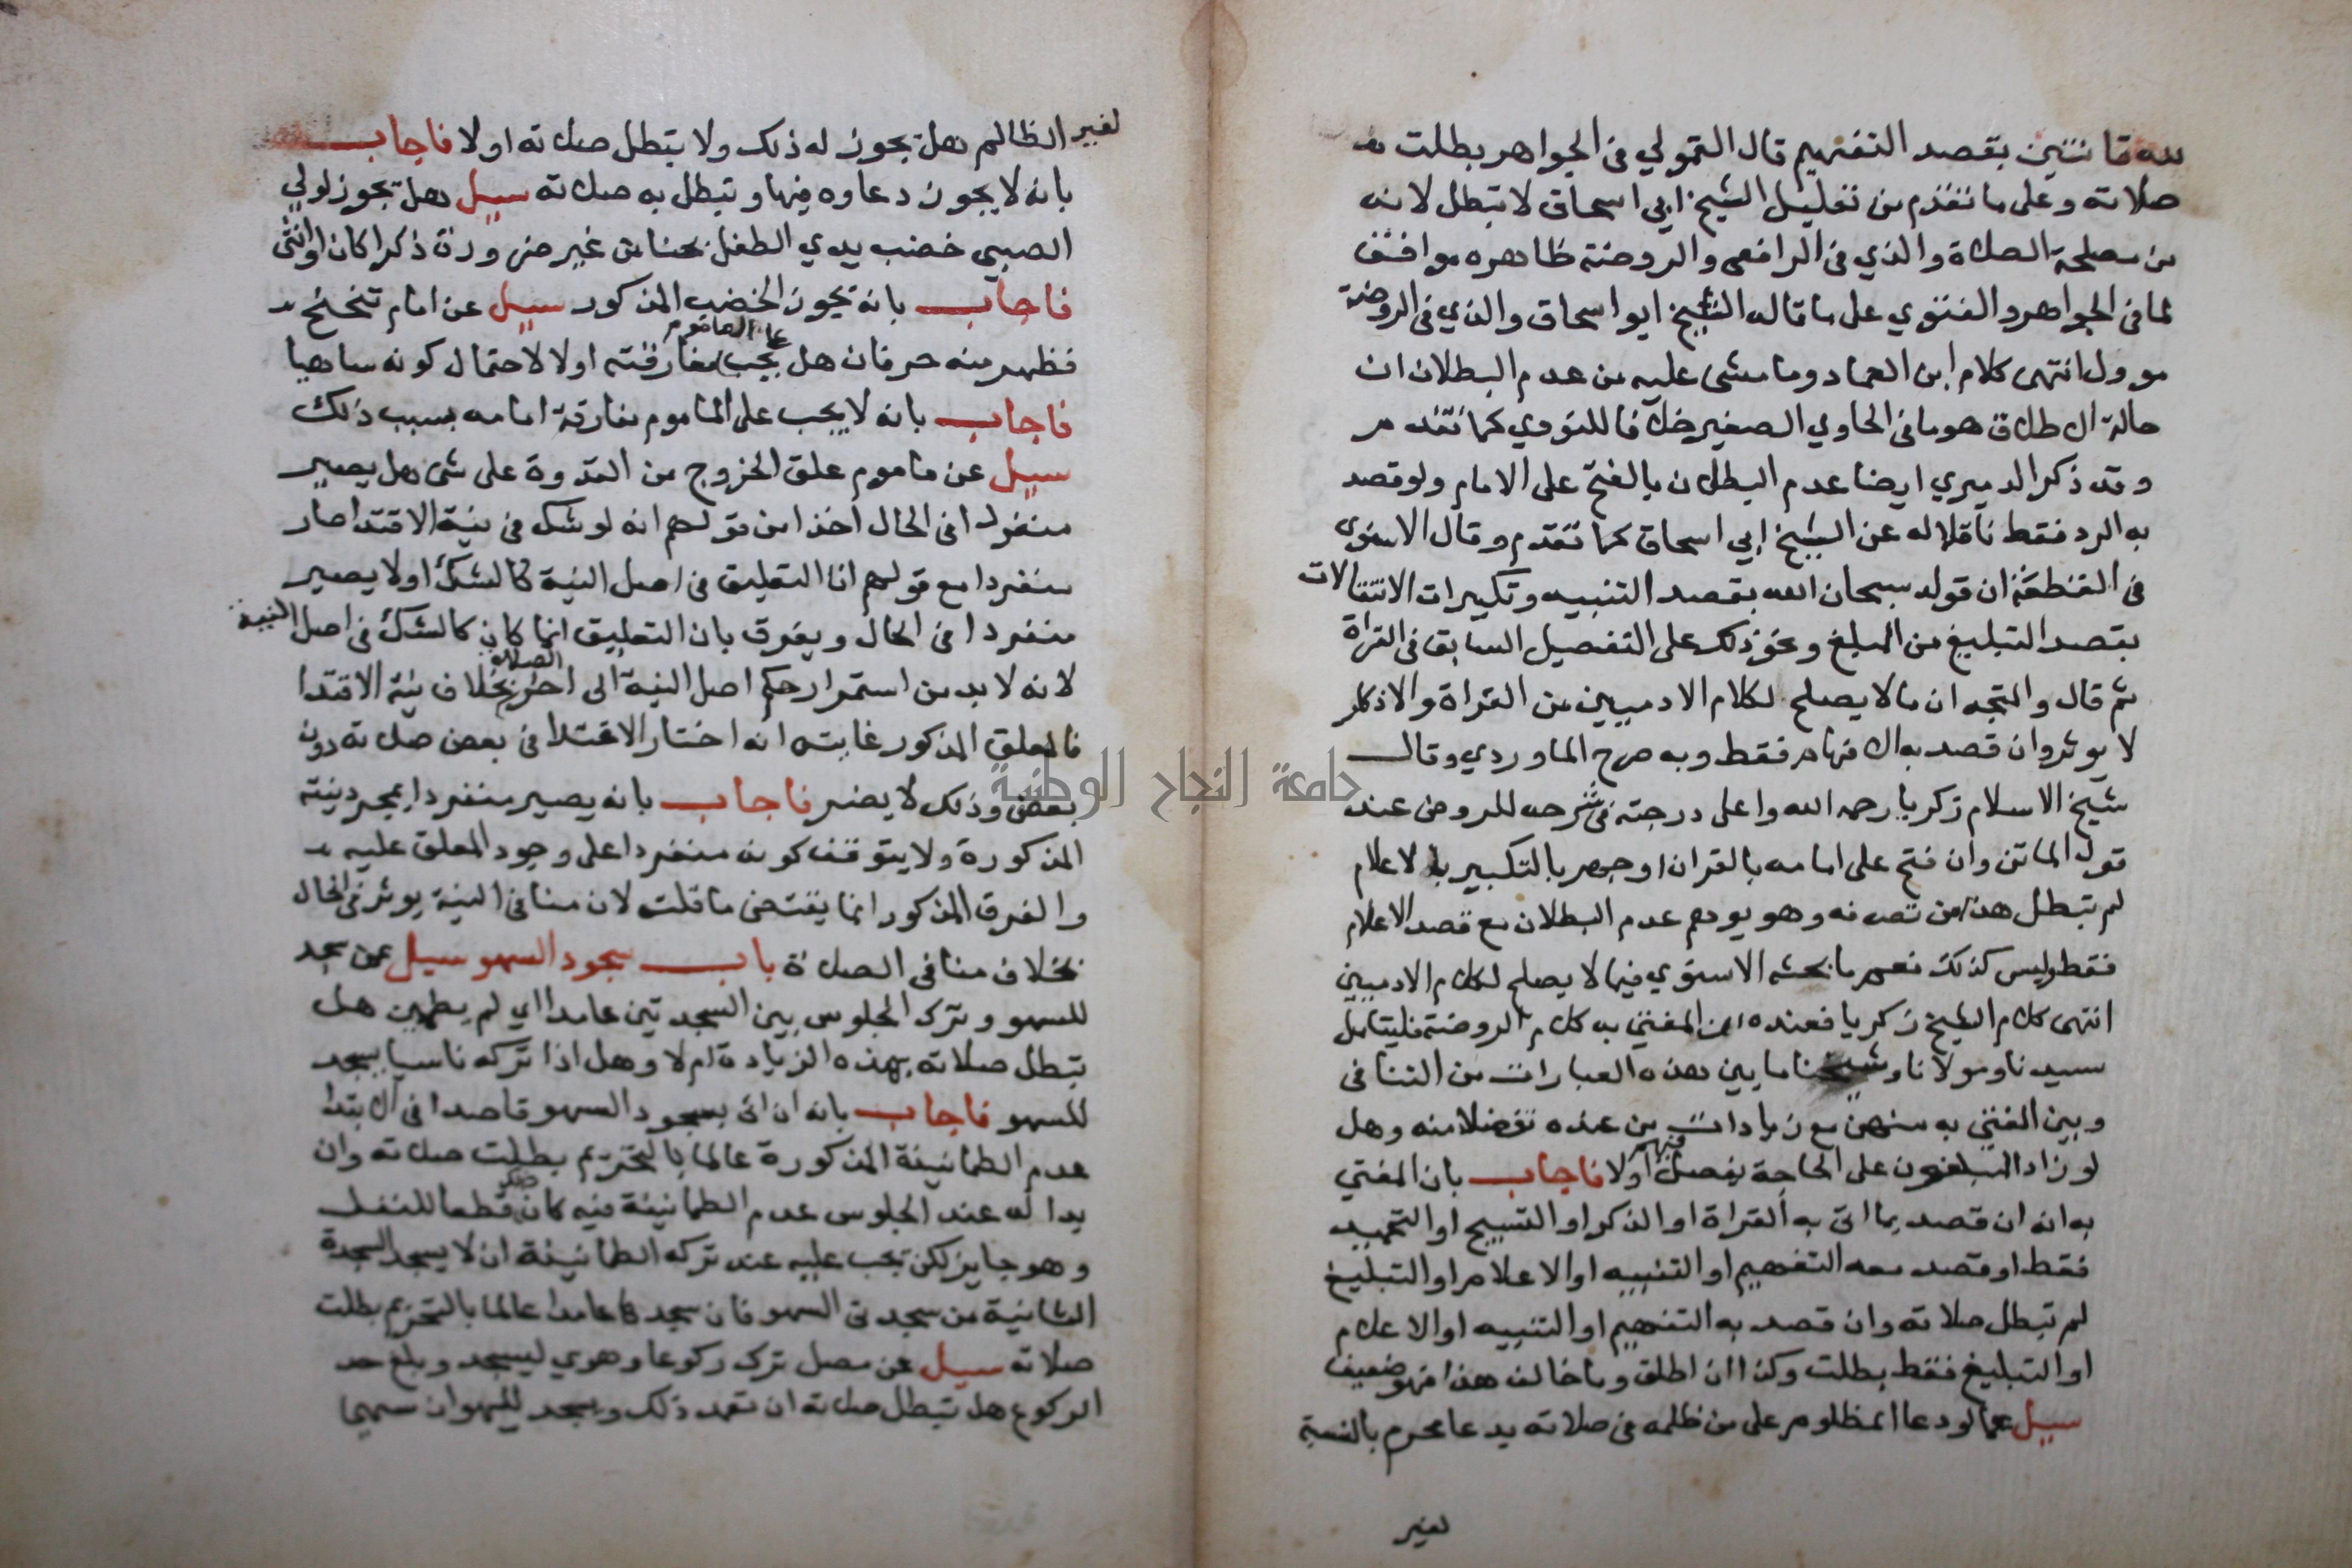 لله قانتين بقصد التفهيم قال القمولي في الجواهر بطلت
صلاته وعلى ما تقدم من تعليل الشيخ ابي اسحاق لا تبطل لانه
من مصلحة الصلاة والذي في الرافعي والروضة ظاهره موافق
لما في الجواهر والفتوي على ما قاله الشيخ ابو اسحاق والذي في الروضة
موول انتهى كلام ابن العماد وما مشى عليه من عدم البطلان
حالة الاطلاق هو ما في الحاوي الصغير خلافا للنووي كما تقدم
وقد ذكر الدميري ايضا عدم البطلان بالفتح على الامام ولو قصد
به الرد فقط ناقلا له عن الشيخ ابي اسحاق كما تقدم وقال الاسنوي
في القطعة ان قوله سبحان الله بقصد التنبيه وتكبيرات الانتقالات
بقصد التبليغ من المبلغ ونحو ذلك على التفصيل السابق في القراة
ثم قال والمتجه ان ما لا يصلح لكلام الادميين من القراة والاذكار
لا يوثر وان قصد به الافهام فقط وبه صرح الماوردي وقال
شيخ الاسلام زكريا رحمه الله واعلى درجته في شرحه للروض عند
قول الماتن وان فتح على امامه بالقران او جهر بالتكبير للاعلام
لم تبطل هذا من تصرفه وهو يوهم عدم البطلان مع قصد الاعلام
فقط وليس كذلك نعم ما بحثه الاسنوي فيما لا يصلح لكلام الادميين
انتهى كلام الشيخ زكريا فعنده ان المفتى به كلام الروضة فليتامل
سيدنا ومولانا وشيخنا ما بين هذه العبارات من التنافي
وبين المفتي به منهن مع زيادات من عنده تفضلا منه وهل
لو زاد المبلغون على الحاجة يفصل فيهم اولا فاجاب بان المفتي
به انه ان قصد بما اتى به القراة او الذكر او التسبيح او التحميد
فقط او قصد معه التفهيم او التنبيه او الاعلام او التبليغ
لم تبطل صلاته وان قصد به التفهيم او التنبيه او الاعلام
او التبليغ فقط بطلت وكذا ان اطلق وما خالف هذا فهو ضعيف
سيل عما لو دعا المظلوم على من ظلمه في صلاته بدعا محرم بالنسبة
لغير
لغير الظالم هل يجوز له ذلك ولا يبطل صلاته اولا فاجاب
بانه لا يجوز دعاوه فيها وتبطل به صلاته سيل هل يجوز لولي
الصبي خضب يدي الطفل بحنا من غير ضرورة ذكرا كان او انثى
فاجاب بانه يجوز الخضب المذكور سيل عن امام تنحنح
فظهر منه حرفان هل يجب على الماموم مفارقته اولا لاحتمال كونه ساهيا
فاجاب بانه لا يجب على الماموم مفارقة امامه بسبب ذلك
سيل عن ماموم علق الخروج من القدوة على شي هل يصير
منفردا في الحال اخذا من قولهم انه لو شك في نية الاقتدا صار
منفردا مع قولهم ان التعليق في اصل النية كالشك اولا يصير
منفردا في الحال ويفرق بان التعليق انما كان كالشك في اصل النية
لانه لا بد من استمرار حكم اصل النية الى اخر الصلاة بخلاف نية الاقتدا
فالمعلق المذكور غايته انه اختار الاقتدا في بعض صلاته دون
بعض وذلك لا يضر فاجاب بانه يصير منفردا بمجرد نيته
المذكورة ولا يتوقف كونه منفردا على وجود المعلق عليه
والفرق المذكور انما يقتضي ما قلت لان منافي النية يوثر في الحال
بخلاف منافي الصلاة باب سجود السهو سيل عمن سجد
للسهو وترك الجلوس بين السجدتين عامدا اي لم يطمين هل
تبطل صلاته بهذه الزيادة ام لا وهل اذا تركه ناسيا يسجد
للسهو فاجاب بانه ان اتى بسجود السهو قاصدا في الابتدا
عدم الطمانينة المذكورة عالما بالتحريم بطلت صلاته وان
بدا له عند الجلوس عدم الطمانينة فيه كان قطعا للنفل
وهو جايز لكن يجب عليه عند تركه الطمانينة ان لا يسجد السجدة
الثانية من سجدتي السهو فان سجدها عامدا عالما بالتحريم بطلت
صلاته سيل عن مصل ترك ركوعا وهوي ليسجد وبلغ حد
الركوع هل تبطل صلاته ان تعمد ذلك ويسجد للسهو ان سهى
جامعة النجاح الوطنية